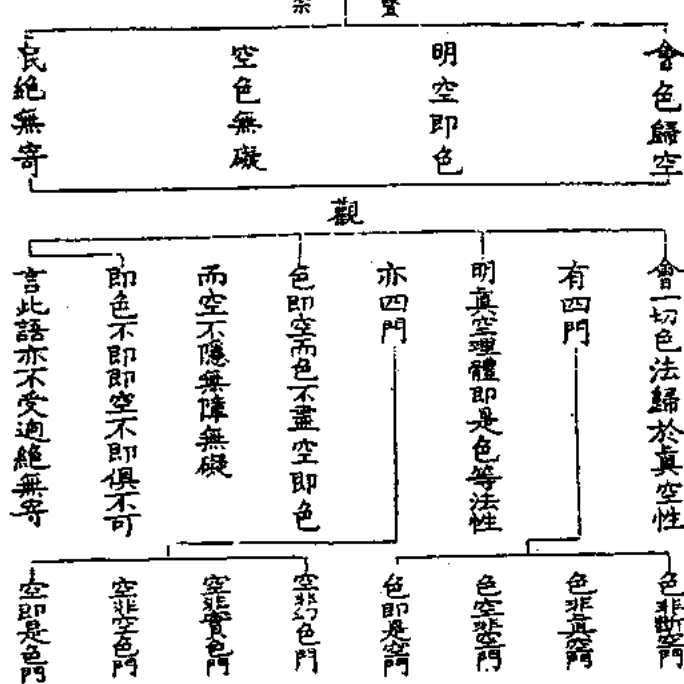 會色歸空
明空即色
空色無礙
泯絕無寄
觀
會一切色法歸於眞空性
有四門
明眞空理體即是色等法性
亦四門
色即空而色不盡空即色
而空不隱無障無礙
即色不即即空不即俱不可
言此語亦不受逈絕無寄
色非斷空門
色非眞空門
色空非空門
色即是空門
空非幻色門
空非實色門
空非空色門
空即是色門